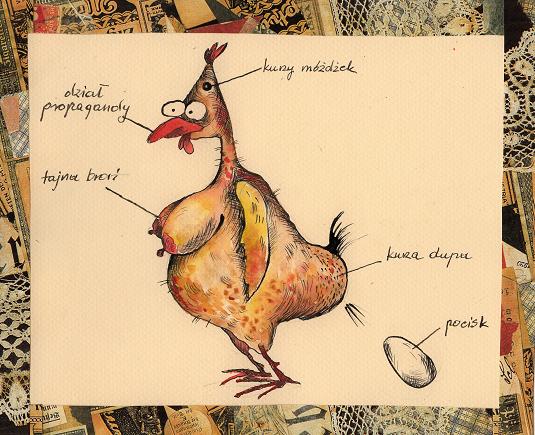 kurzy móżdżek
dział
propagandy
tajna broń
kurza dupa
pocisk